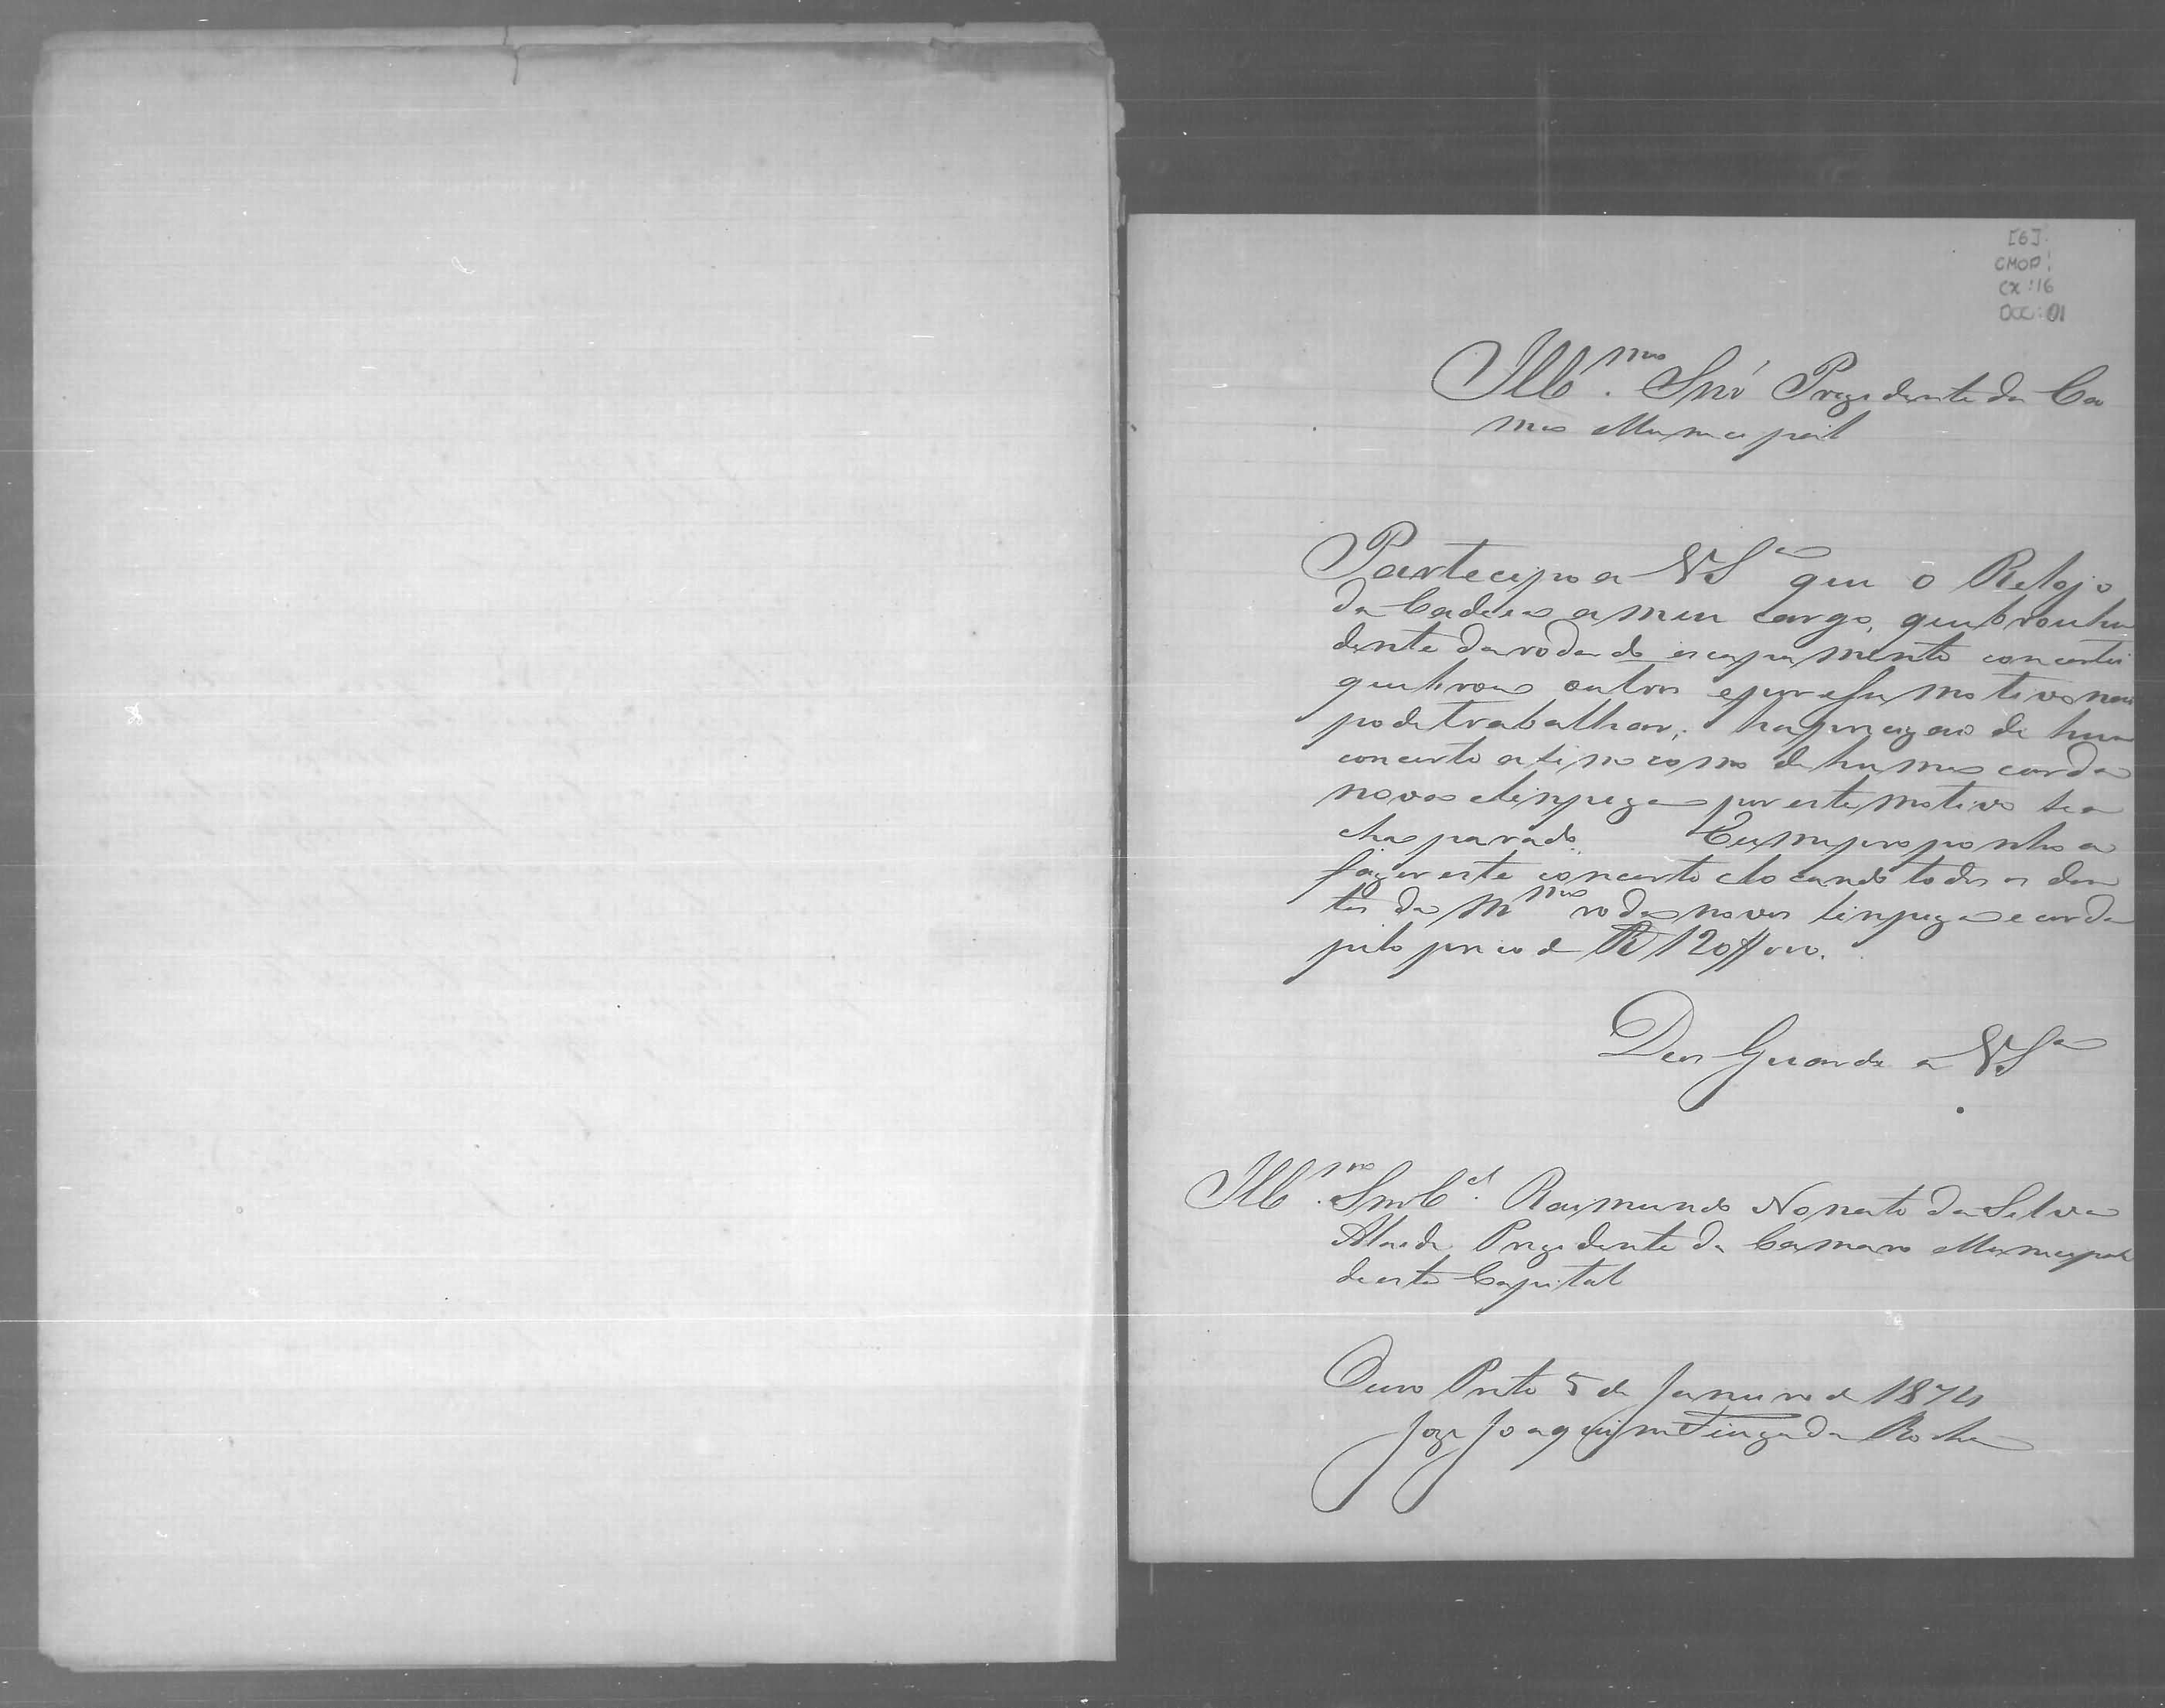 [6]
CMOP:
CX:16
DOC:01
Illmo. Snr Prezidente da Ca
mra Municipal
Partecipo a VSa que o Relojo
da Cadeia a meu cargo, quebrou hu
dente da roda do escapamento concertei
quebrou outros e por esse motivo não
pode trabalhar; ha precizão de hum
concerto asim como de huma corda
nova e linpeza por este motivo se a
cha parado. Eu me proponho a
fazer este concerto colocando todos os den
tes da mma roda novos linpeza e corda
pelo preco de R 120$000.
Deos Guarde a VSa
Illmo. Snr Cel. Raimundo Nonato da Silva
Ataide Prezidente da Camara Municipal
desta Capital
Ouro Preto 5 de Janeiro de 1874
Joze Joaquim da Rocha